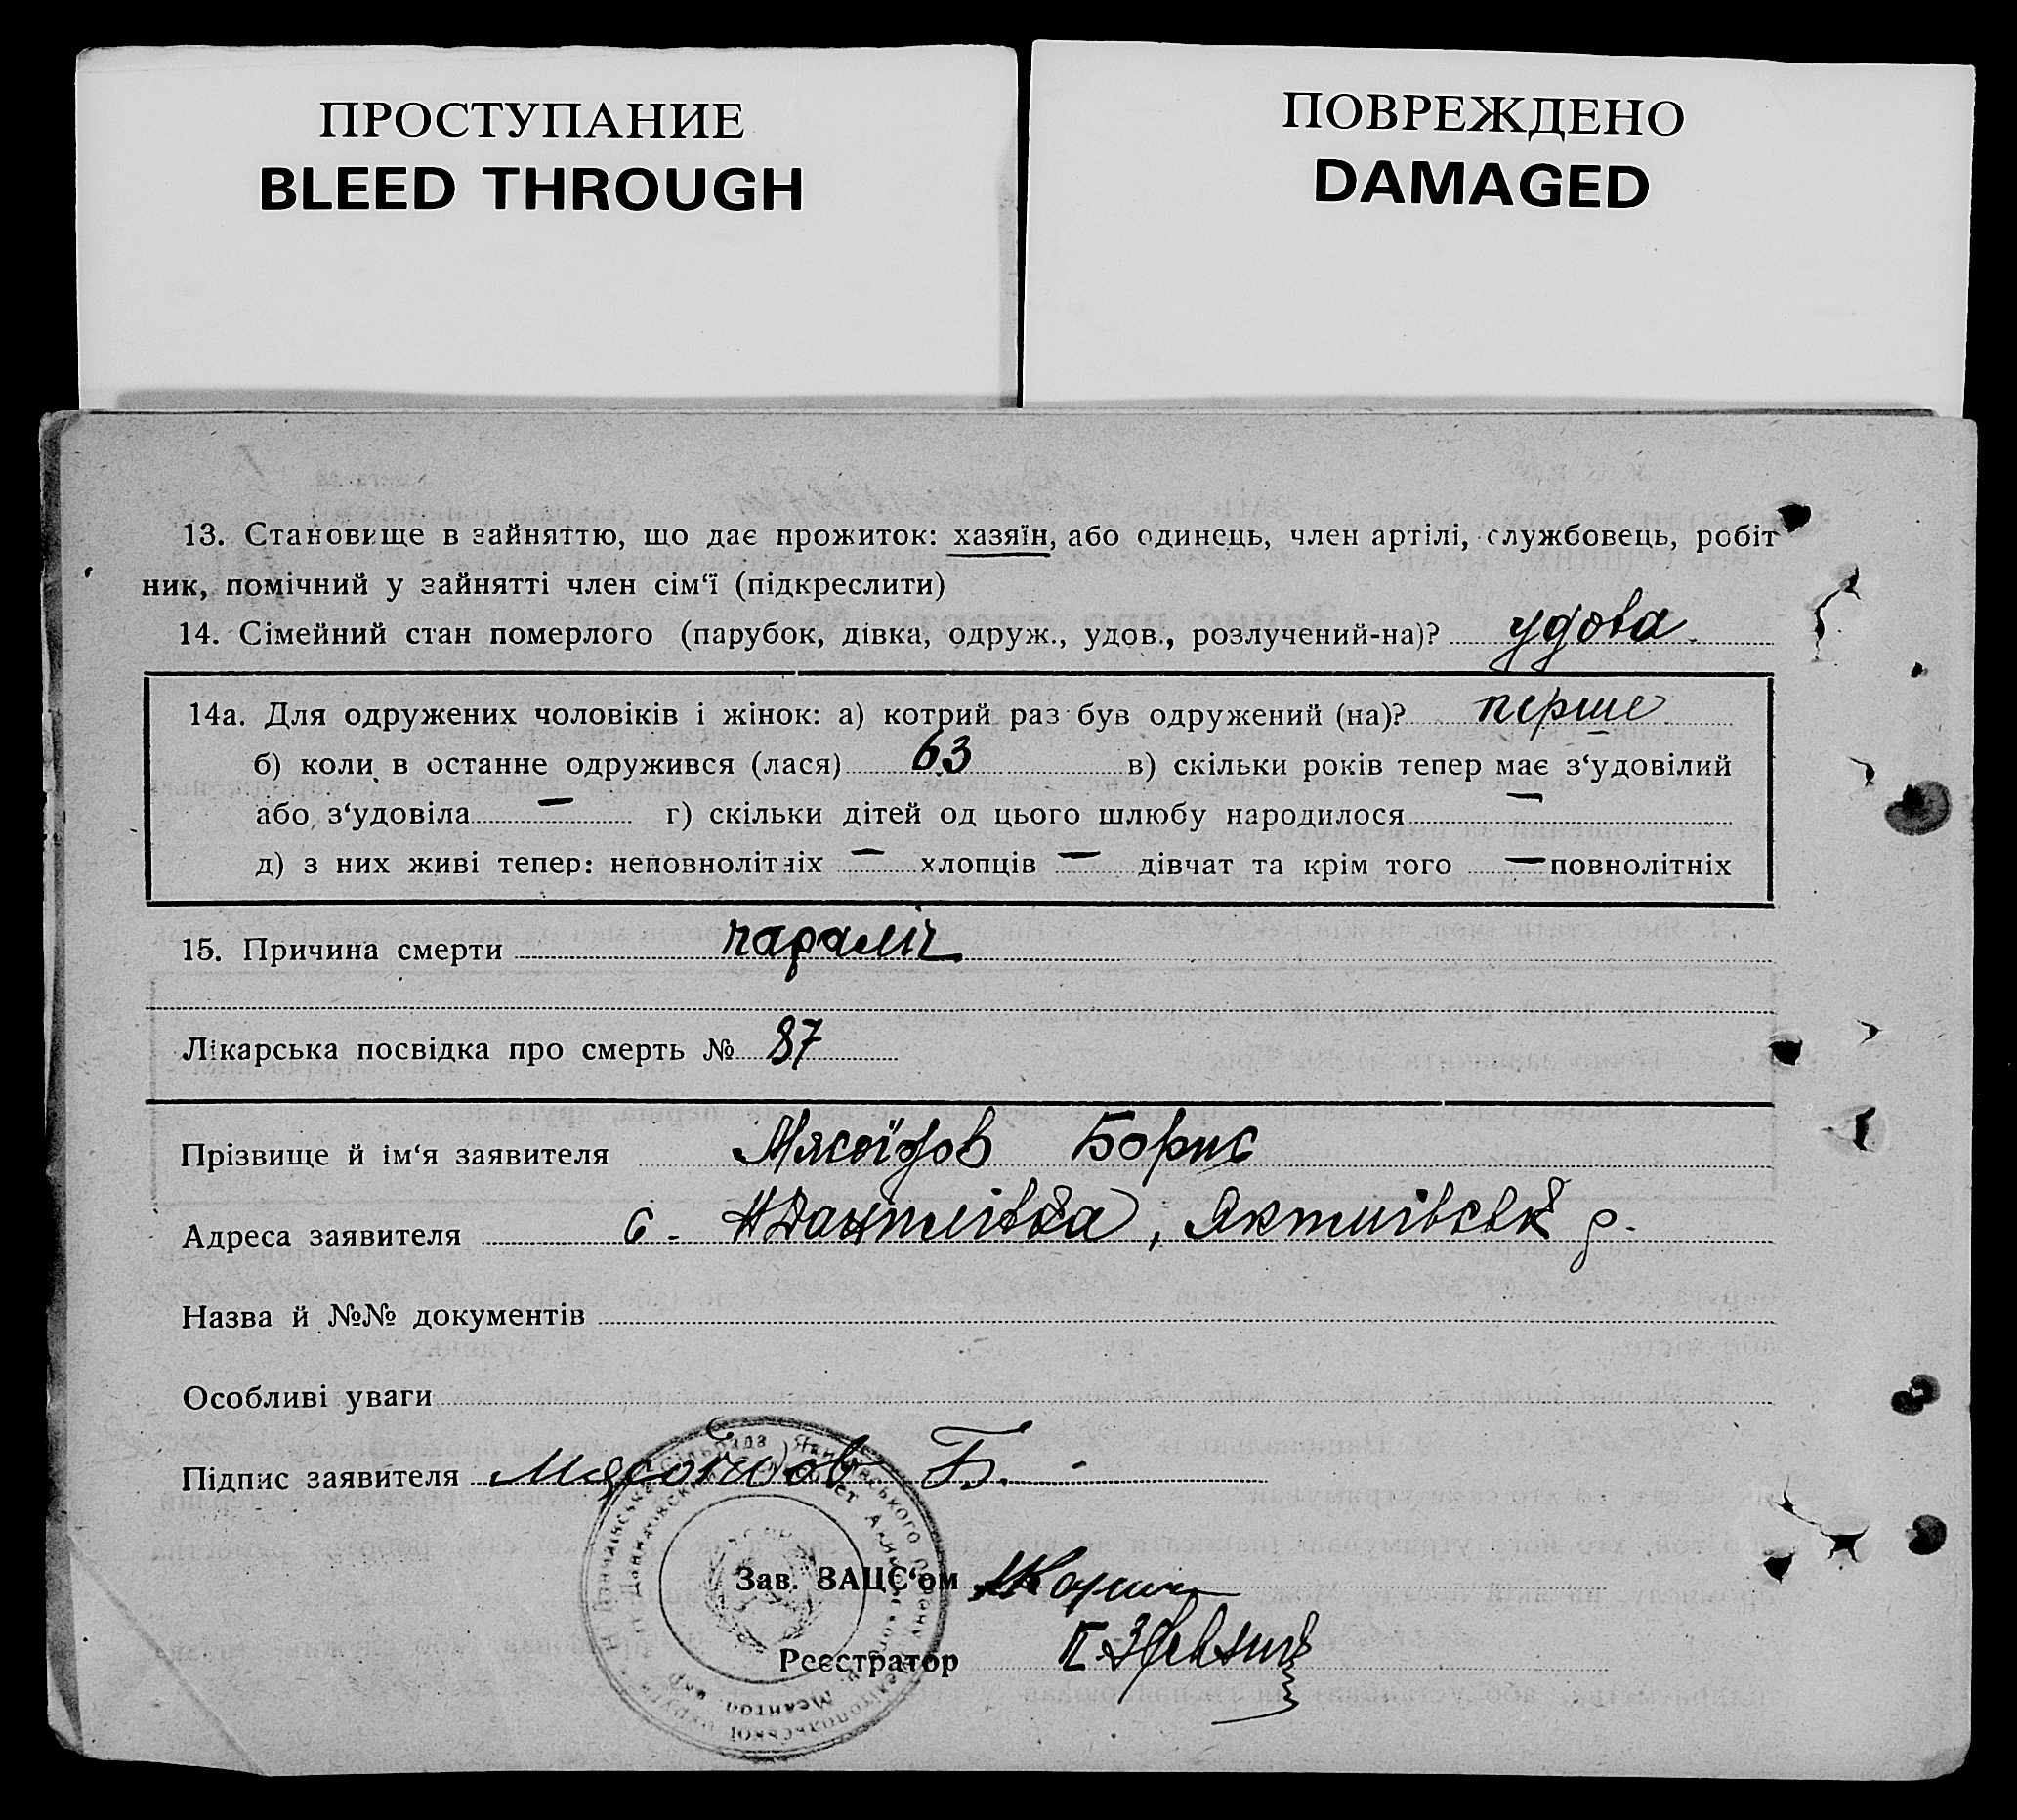 ПРОСТУПАНИЕ
BLEED THROUGH
ПОВРЕЖДЕНО
DAMAGED
13. Становище в зайняттю, що дає прожиток: хазяїн, або одинець, член артілі, службовець, робіт
ник, помічний у зайнятті член сім‘ї (підкреслити)
14. Сімейний стан померлого (парубок, дівка, одруж., удов., розлучений-на)? удова
14а. Для одружених чоловіків і жінок: а) котрий раз був одружений (на)? перше
б) коли в останне одружився (лася) 63 в) скільки років тепер має з‘удовілий
або з‘удовіла — г) скільки дітей од цього шлюбу народилося —
д) з них живі тепер: неповнолітніх — хлопців — дівчат та крім того — повнолітніх
15. Причина смерти параліч
Лікарська посвідка про смерть № 87
Прізвище й ім‘я заявителя Мясоїдов Борис
Адреса заявителя с. Н Данилівка, Якимівськ р.
Назва й №№ документів
Особливі уваги
Підпис заявителя Мясоїдов Б.
Зав. ЗАЦС‘ом
Реєстратор